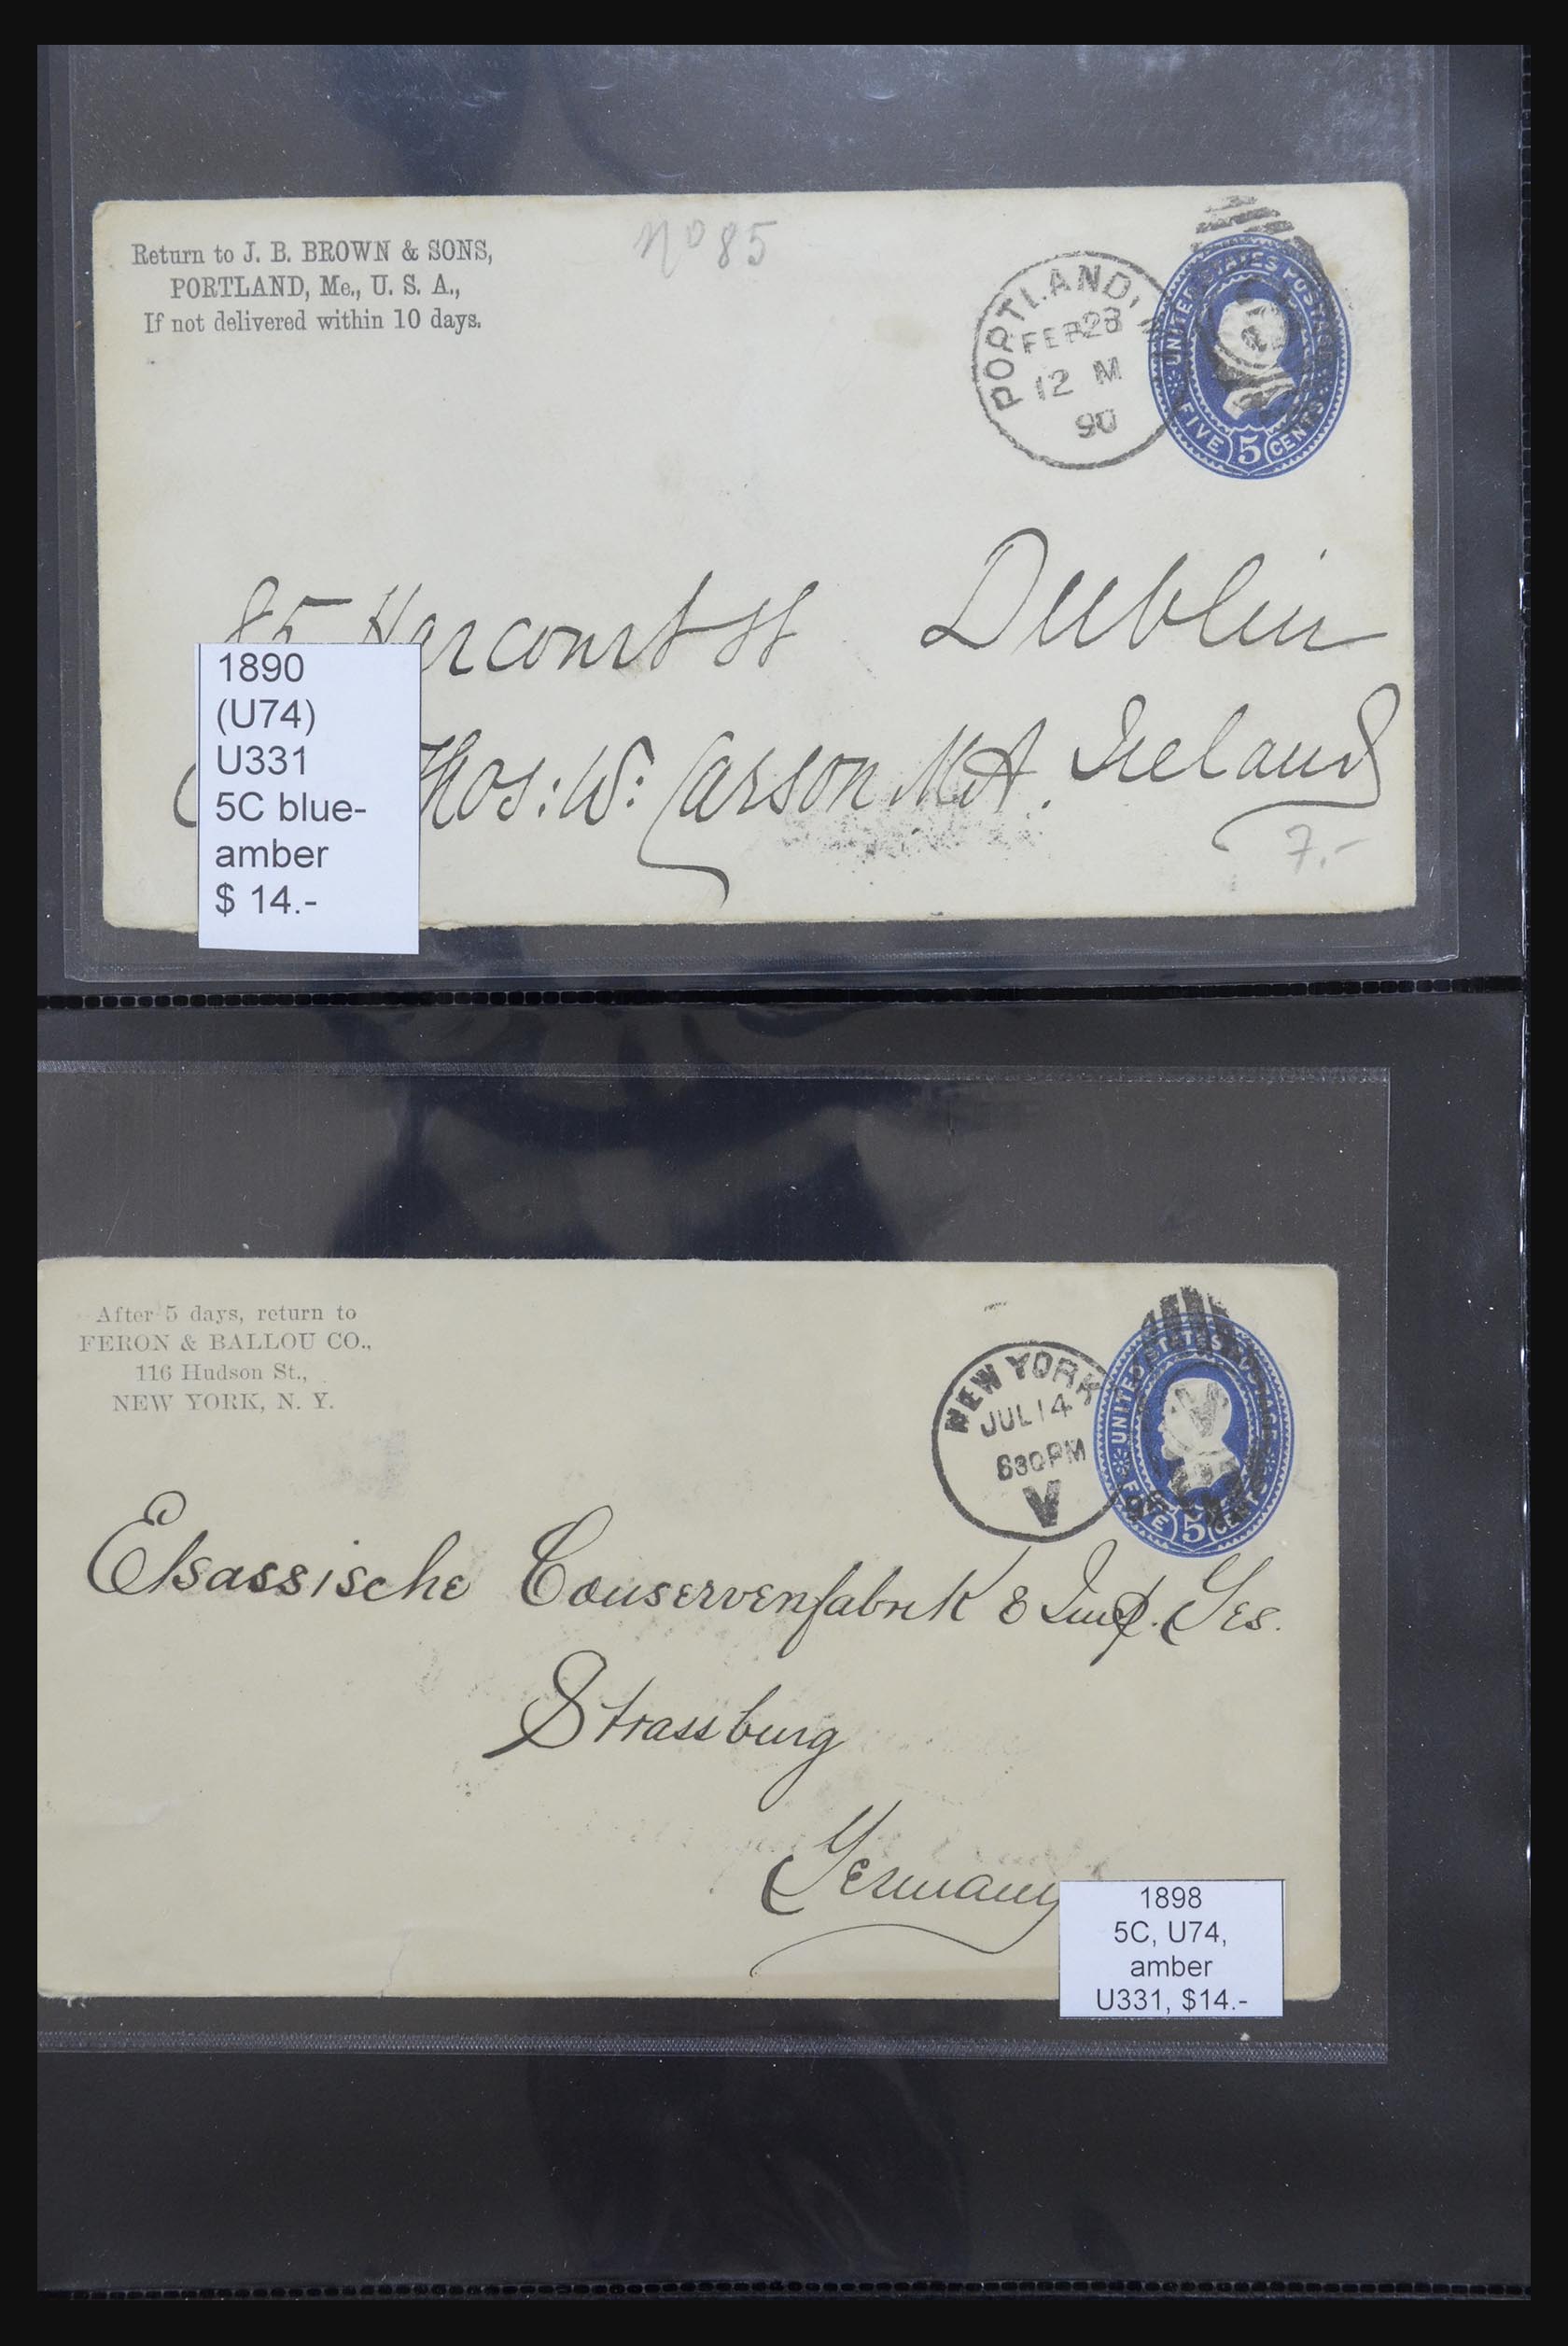 Return to J. B. BROWN & SONS,
PORTLAND, Me., U. S. A.,
If not delivered within 10 days.
No 85
PORTLAND,
FEB 28
12 M
90
UNITED STATES POSTAGE
FIVE 5 CENTS
85 Harcourt St Dublin
Thos: W: Carson M.A. Ireland
7.-
1890
(U74)
U331
5C blue-
amber
$ 14.-
After 5 days, return to
FERON & BALLOU CO.,
116 Hudson St.,
NEW YORK, N. Y.
NEW YORK
JUL 14
630PM
V
UNITED STATES POSTAGE
FIVE 5 CENTS
Elsassische Conservenfabrik & Imp. Ges.
Strassburg
Germany
1898
5C, U74,
amber
U331, $14.-